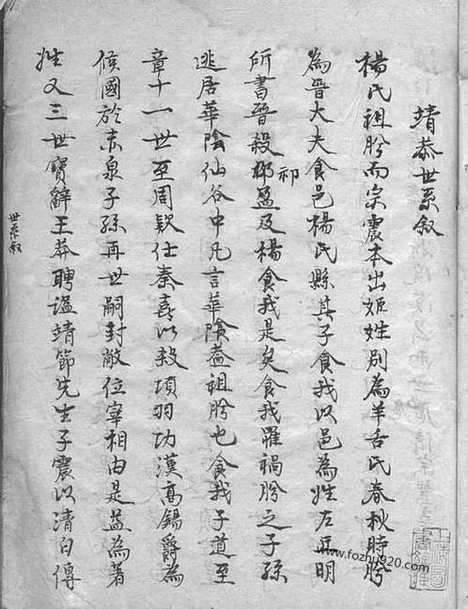 靖恭世系叙
楊氏祖肹而宗震本出姬姓別為羊舌氏春秋時肹
為晉大夫食邑楊氏縣其子食我以邑為姓左丘明
所書晉殺祁盈及楊食我是矣食我罹禍肹之子孫
逃居華陰仙谷中凡言華陰益祖肹也食我子道至
章十一世至周欽仕秦喜以殺項羽功漢高錫爵為
侯國於赤泉子孫再世嗣封敞位宰相由是益為著
姓又三世寶辭王莽聘謚靖節先生子震以清白傳
世系叙
www.fozhu920.com